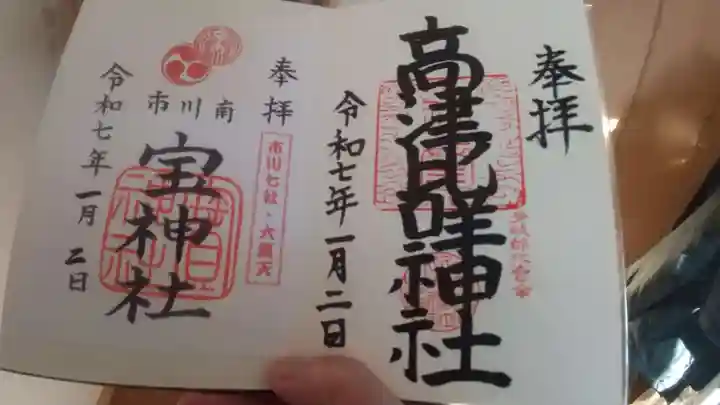 奉拝
高津比咩神社
令和七年一月二日
奉拝
市川七社・六顕天
市川南
宝神社
令和七年一月二日